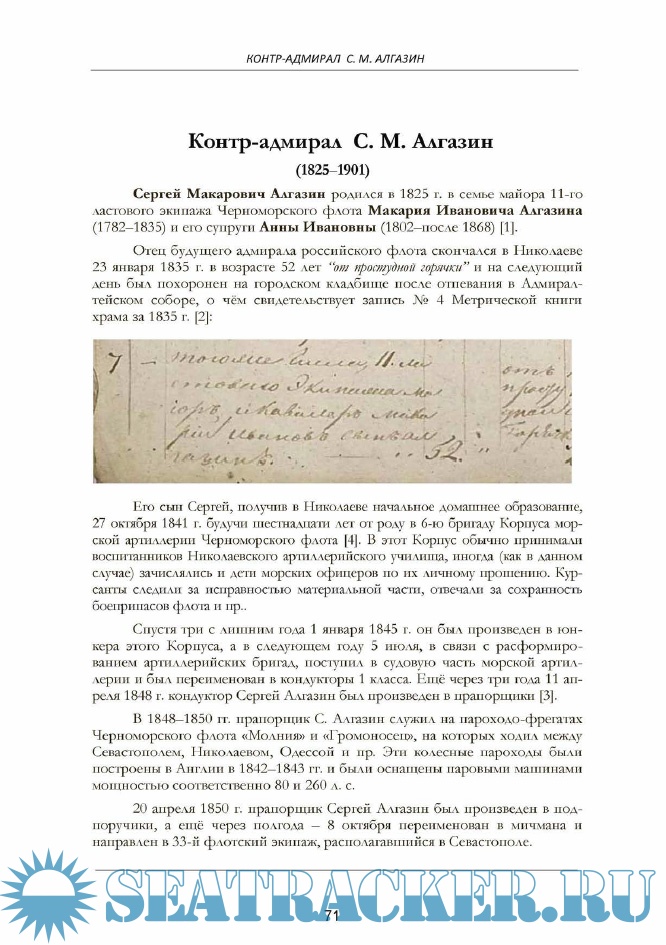 КОНТР-АДМИРАЛ С. М. АЛГАЗИН
Контр-адмирал С. М. Алгазин
(1825–1901)
Сергей Макарович Алгазин родился в 1825 г. в семье майора 11-го
ластового экипажа Черноморского флота Макария Ивановича Алгазина
(1782–1835) и его супруги Анны Ивановны (1802–после 1868) [1].
Отец будущего адмирала российского флота скончался в Николаеве
23 января 1835 г. в возрасте 52 лет “от простудной горячки” и на следующий
день был похоронен на городском кладбище после отпевания в Адмирал-
тейском соборе, о чём свидетельствует запись № 4 Метрической книги
храма за 1835 г. [2]:
7 – тогоже числа 11. ла
стоваго Экипажа ма
іоръ, и Кавалеръ Мака
рій Ивановъ сынъ Ал
газинъ. 52.
отъ
просту
дной
Горячк
Его сын Сергей, получив в Николаеве начальное домашнее образование,
27 октября 1841 г. будучи шестнадцати лет от роду в 6-ю бригаду Корпуса мор-
ской артиллерии Черноморского флота [4]. В этот Корпус обычно принимали
воспитанников Николаевского артиллерийского училища, иногда (как в данном
случае) зачислялись и дети морских офицеров по их личному прошению. Кур-
санты следили за исправностью материальной части, отвечали за сохранность
боеприпасов флота и пр..
Спустя три с лишним года 1 января 1845 г. он был произведен в юн-
кера этого Корпуса, а в следующем году 5 июля, в связи с расформиро-
ванием артиллерийских бригад, поступил в судовую часть морской артил-
лерии и был переименован в кондукторы 1 класса. Ещё через три года 11 ап-
реля 1848 г. кондуктор Сергей Алгазин был произведен в прапорщики [3].
В 1848–1850 гг. прапорщик С. Алгазин служил на пароходо-фрегатах
Черноморского флота «Молния» и «Громоносец», на которых ходил между
Севастополем, Николаевом, Одессой и пр. Эти колесные пароходы были
построены в Англии в 1842–1843 гг. и были оснащены паровыми машинами
мощностью соответственно 80 и 260 л. с.
20 апреля 1850 г. прапорщик Сергей Алгазин был произведен в под-
поручики, а ещё через полгода – 8 октября переименован в мичмана и
направлен в 33-й флотский экипаж, располагавшийся в Севастополе.
SEATRACKER.RU
71